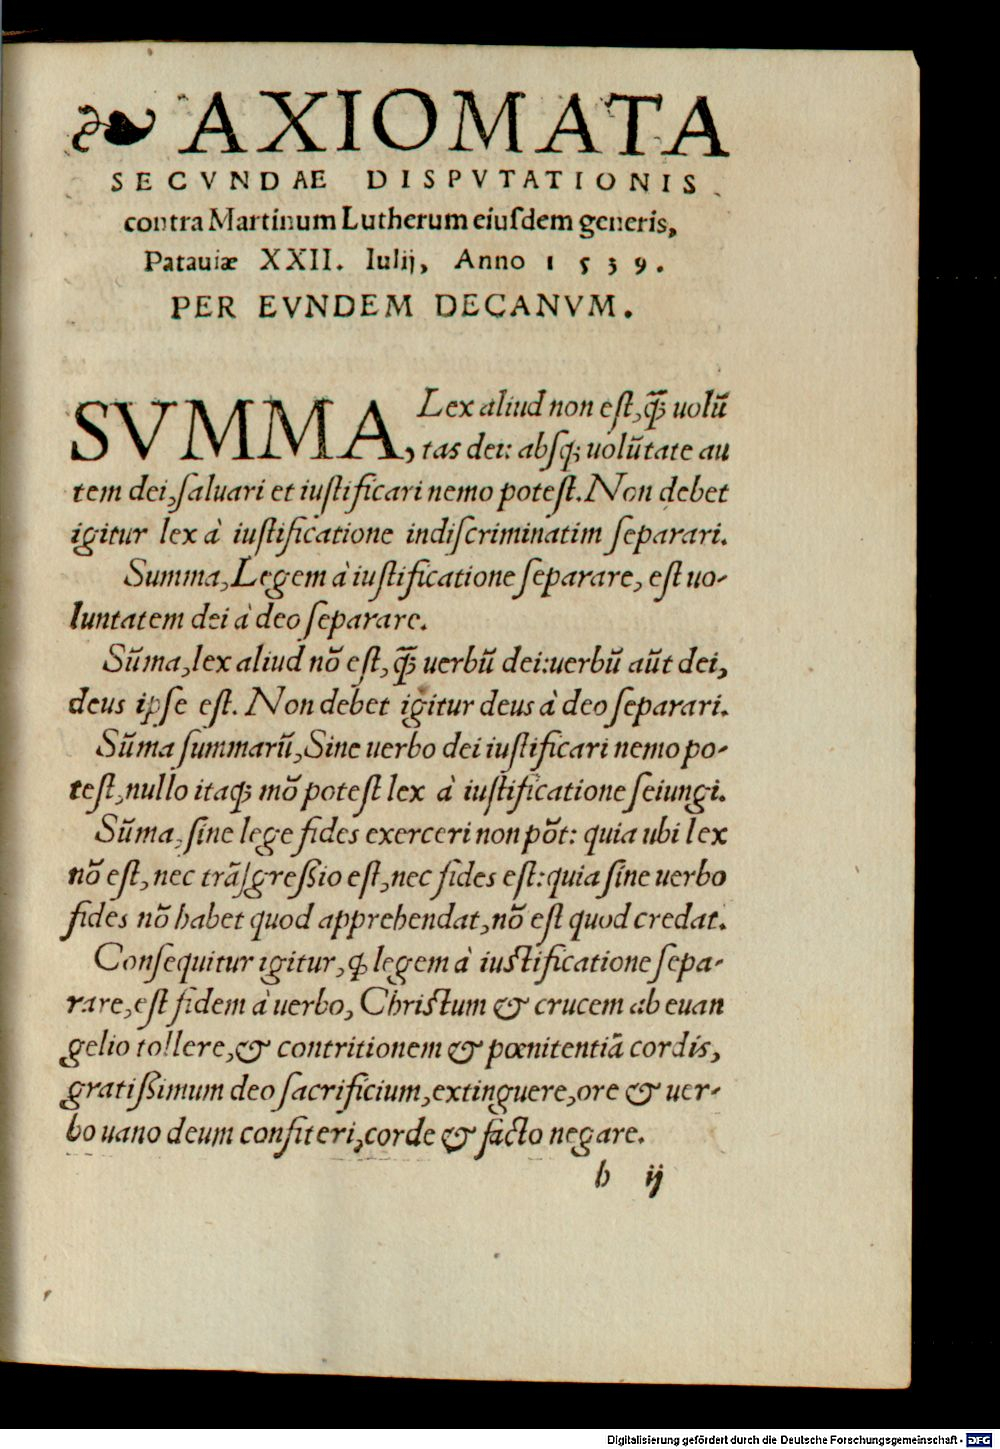 ❧ AXIOMATA
SECVNDAE DISPVTATIONIS
contra Martinum Lutherum eiuſdem generis,
Patauiæ XXII. Iulij, Anno 1539.
PER EVNDEM DECANVM.
SVMMA, Lex aliud non eſt, ꝗ̃ uolũ
tas dei: abſꝗ; uolũtate au
tem dei, ſaluari et iuſtificari nemo poteſt. Non debet
igitur lex à iuſtificatione indiſcriminatim ſeparari.
Summa, Legem à iuſtificatione ſeparare, eſt uo-
luntatem dei à deo ſeparare.
Sũma, lex aliud nõ eſt, ꝗ̃ uerbũ dei: uerbũ aũt dei,
deus ipſe eſt. Non debet igitur deus à deo ſeparari.
Sũma ſummarũ, Sine uerbo dei iuſtificari nemo po-
teſt, nullo itaꝗ; mõ poteſt lex à iuſtificatione ſeiungi.
Sũma, ſine lege fides exerceri non põt: quia ubi lex
nõ eſt, nec trãſgreßio eſt, nec fides eſt: quia ſine uerbo
fides nõ habet quod apprehendat, nõ eſt quod credat.
Conſequitur igitur, ꝙ legem à iuſtificatione ſepa-
rare, eſt fidem à uerbo, Chriſtum & crucem ab euan
gelio tollere, & contritionem & pœnitentiã cordis,
gratißimum deo ſacrificium, extinguere, ore & uer-
bo uano deum confiteri, corde & facto negare.
b ij
Digitalisierung gefördert durch die Deutsche Forschungsgemeinschaft - DFG